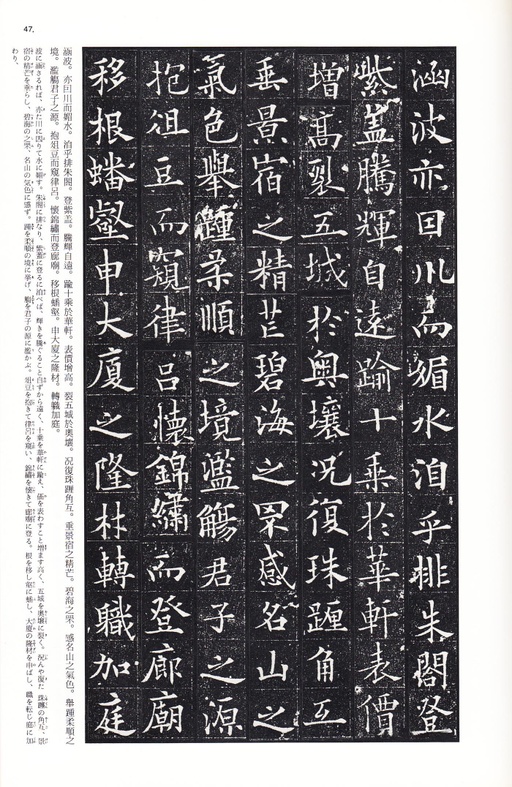 47.
涵波亦囙川而媚水洎乎排朱閣登
紫蓋騰輝自遠踰十乗於華軒表價
増髙裂五城於奧壤况復珠躔角亙
垂景宿之精芒碧海之罘感名山之
氣色舉踵柔順之境濫觴君子之源
抱俎豆而窺律呂懷錦繡而登廊廟
移根蟠壑申大廈之隆材轉職加庭
涵波。亦囙川而媚水。洎乎排朱閣。登紫蓋。騰輝自遠。踰十乗於華軒。表價增高。裂五城於奧壤。况復珠躔角亙。垂景宿之精芒。碧海之罘。感名山之氣色。舉踵柔順之
境。濫觴君子之源。抱俎豆而窺律呂。懷錦繡而登廊廟。移根蟠壑。申大廈之隆材。轉職加庭。
波に涵さるれば、亦た川に因りて水に媚す。朱閣に排なり、紫蓋に登るに洎べば、輝きを騰ぐること自ずから遠く、十乗を華軒に踰え、価を表わすこと増ます高く、五城を奧壤に裂く。況んや復た 珠躔の角亙、景
宿の精芒を垂らし、碧海の之罘、名山の気色に感ず。踵を柔順の境に挙げ、觴を君子の源に濫かぶ。俎豆を抱きて律呂を窺い、錦繡を懐きて廊廟に登る。根を移し壑に蟠し、大廈の隆材を申ばし、職を転じ庭に加
わり、